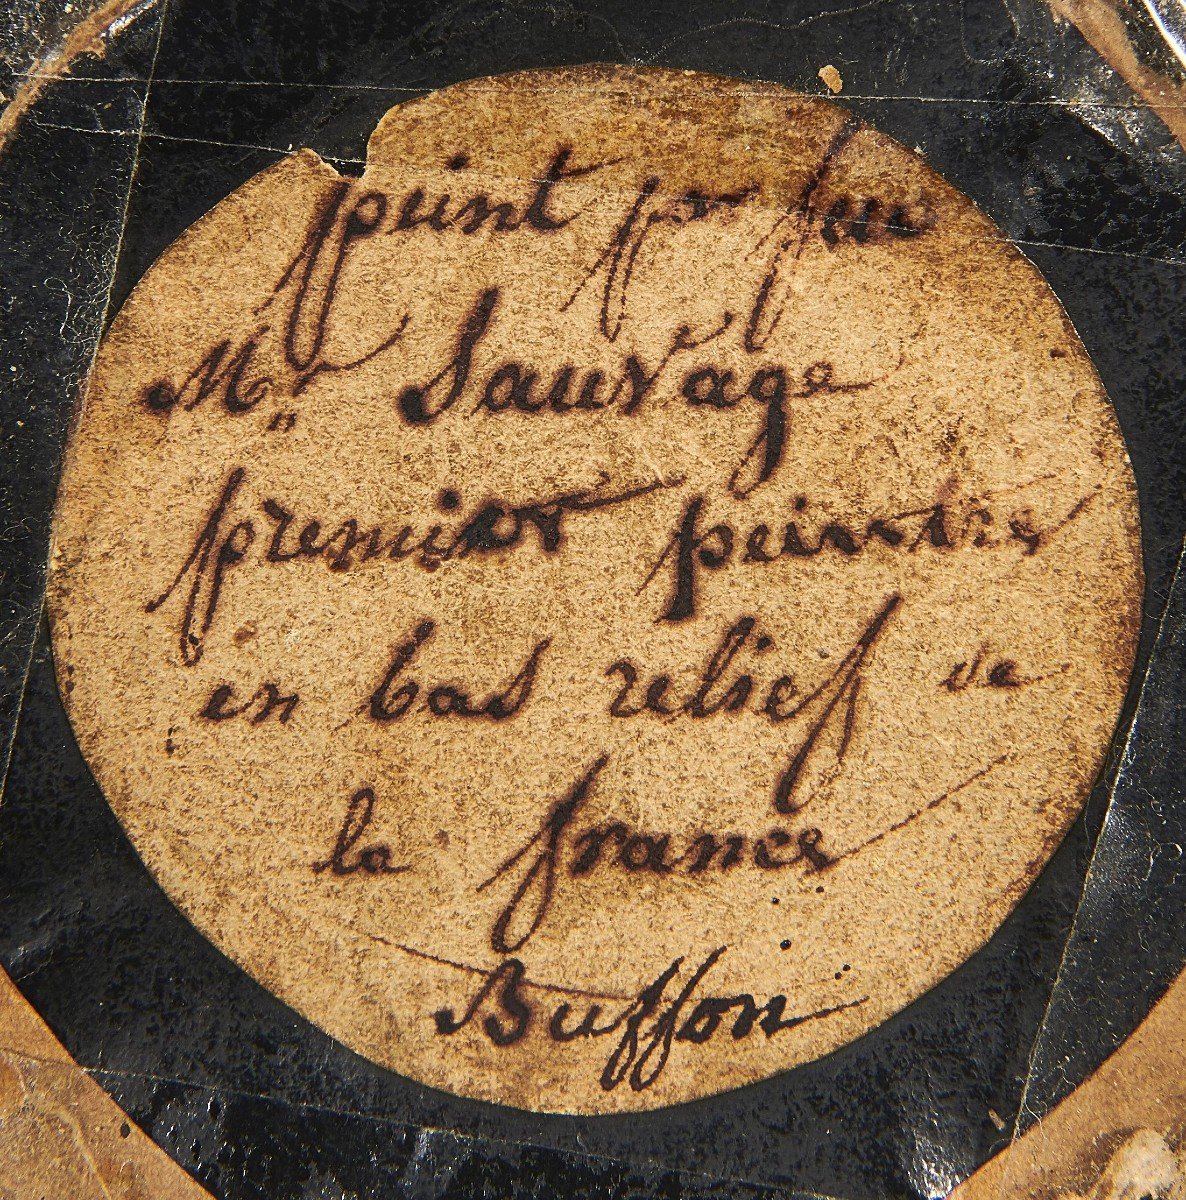 peint par feu
Mr Sauvage
premier peintre
en bas relief de
la france
Buffon